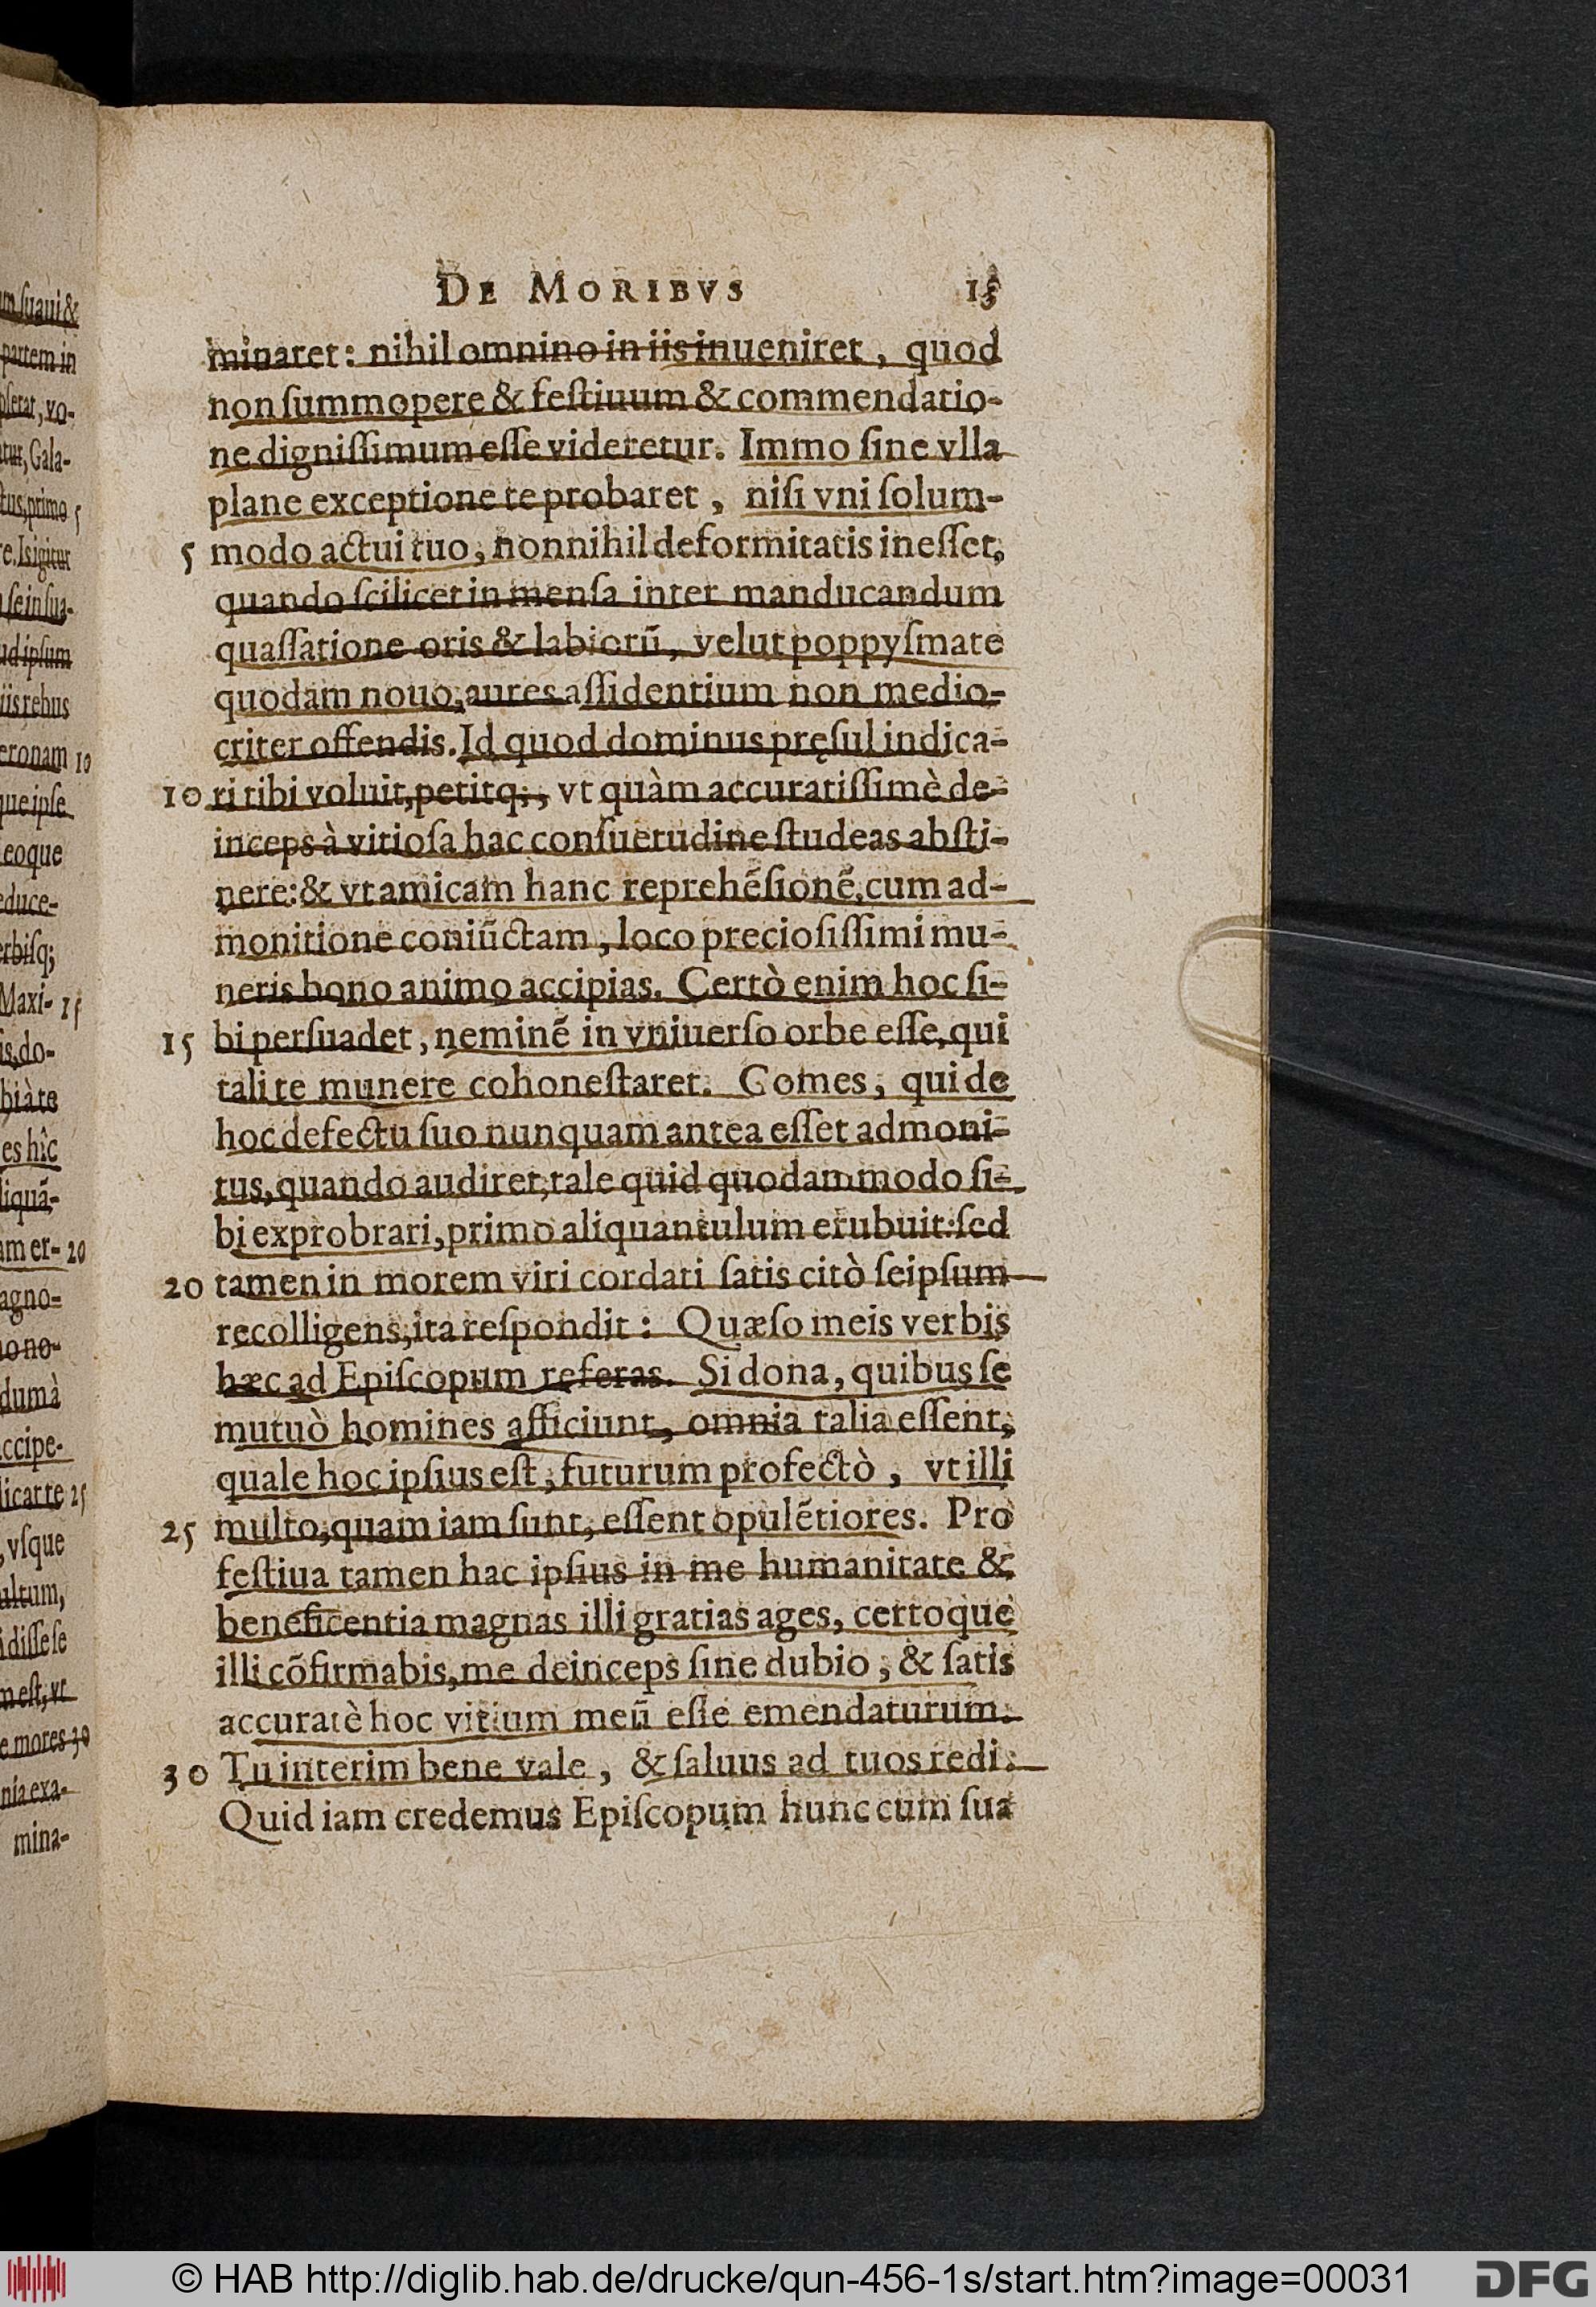 m ſuaui &
partem in
pleta, vo-
tur, Gala-
tus, primo 5
re. Is igitur
ſe in ſua-
ud ipſum
iis rebus
eronam 10
que ipſe
eoque
educe-
erbiſq;
Maxi- 15
is, do-
biàte
es hîc
liquã-
am er- 20
agno-
iono-
dum à
ccipe-
licat te 25
, vſque
ultum,
idiſſe ſe
m eſt, vt
e mores 30
nia exa-
mina-
DE MORIBVS 15
minaret: nihil omnino in iis inueniret, quod
non ſummopere & feſtiuum & commendatio-
ne digniſſimum eſſe videretur. Immo ſine vlla
plane exceptione te probaret, niſi vni ſolum-
5 modo actui tuo, nonnihil deformitatis ineſſet,
quando ſcilicet in menſa inter manducandum
quaſſatione oris & labiorũ, velut poppyſmate
quodam nouo, aures aſſidentium non medio-
criter offendis. Id quod dominus pręſul indica-
10 ri tibi voluit, petitq;, vt quàm accuratiſſimè de-
inceps à vitioſa hac conſuetudine ſtudeas abſti-
nere: & vt amicam hanc reprehẽſionẽ, cum ad-
monitione coniũctam, loco precioſiſſimi mu-
neris bono animo accipias. Certò enim hoc ſi-
15 bi perſuadet, neminẽ in vniuerſo orbe eſſe, qui
tali te munere cohoneſtaret. Comes, qui de
hoc defectu ſuo nunquam antea eſſet admoni-
tus, quando audiret, tale quid quodammodo ſi-
bi exprobrari, primo aliquantulum erubuit: ſed
20 tamen in morem viri cordati ſatis citò ſeipſum
recolligens, ita reſpondit: Quæſo meis verbis
hæc ad Epiſcopum referas. Si dona, quibus ſe
mutuò homines afficiunt, omnia talia eſſent,
quale hoc ipſius eſt, futurum profectò, vt illi
25 multo, quam iam ſunt, eſſent opulẽtiores. Pro
feſtiua tamen hac ipſius in me humanitate &
beneficentia magnas illi gratias ages, certoque
illi cõfirmabis, me deinceps ſine dubio, & ſatis
accuratè hoc vitium meũ eſſe emendaturum.
30 Tu interim bene vale, & ſaluus ad tuos redi.
Quid iam credemus Epiſcopum hunc cum ſua
© HAB http://diglib.hab.de/drucke/qun-456-1s/start.htm?image=00031
DFG